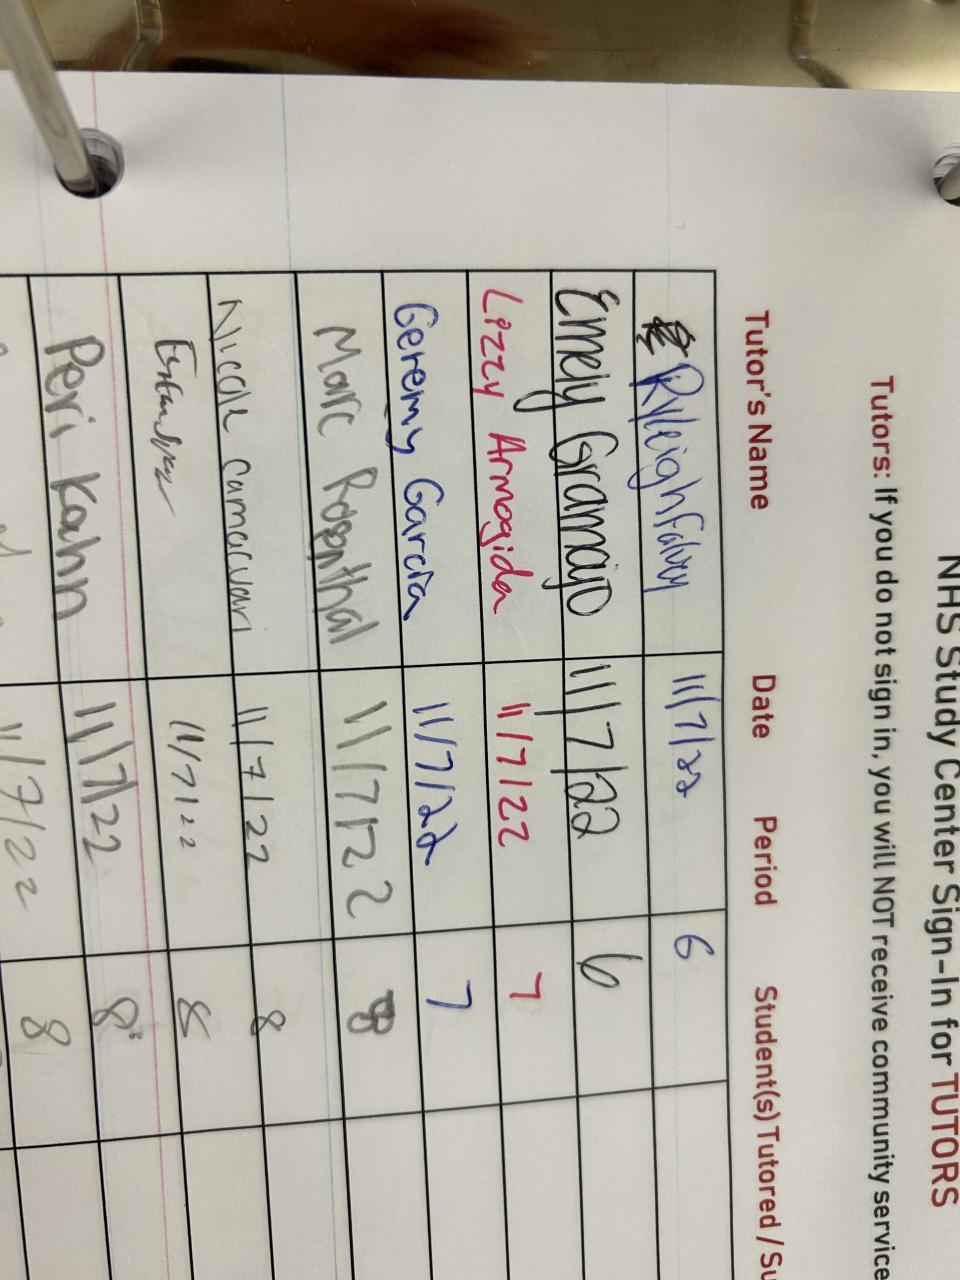 NHS Study Center Sign-In for TUTORS
Tutors: If you do not sign in, you will NOT receive community service
Tutor's Name Date Period Student(s) Tutored / Su
Ryleigh 11/7/22 6
Emely Gramajo 11/7/22 6
Lizzy Armogida 11/7/22 7
Geremy Garcia 11/7/22 7
Marc 11/7/22 8
Nicole 11/7/22 8
11/7/22 8
Peri Kahn 11/7/22 8
11/7/22 8